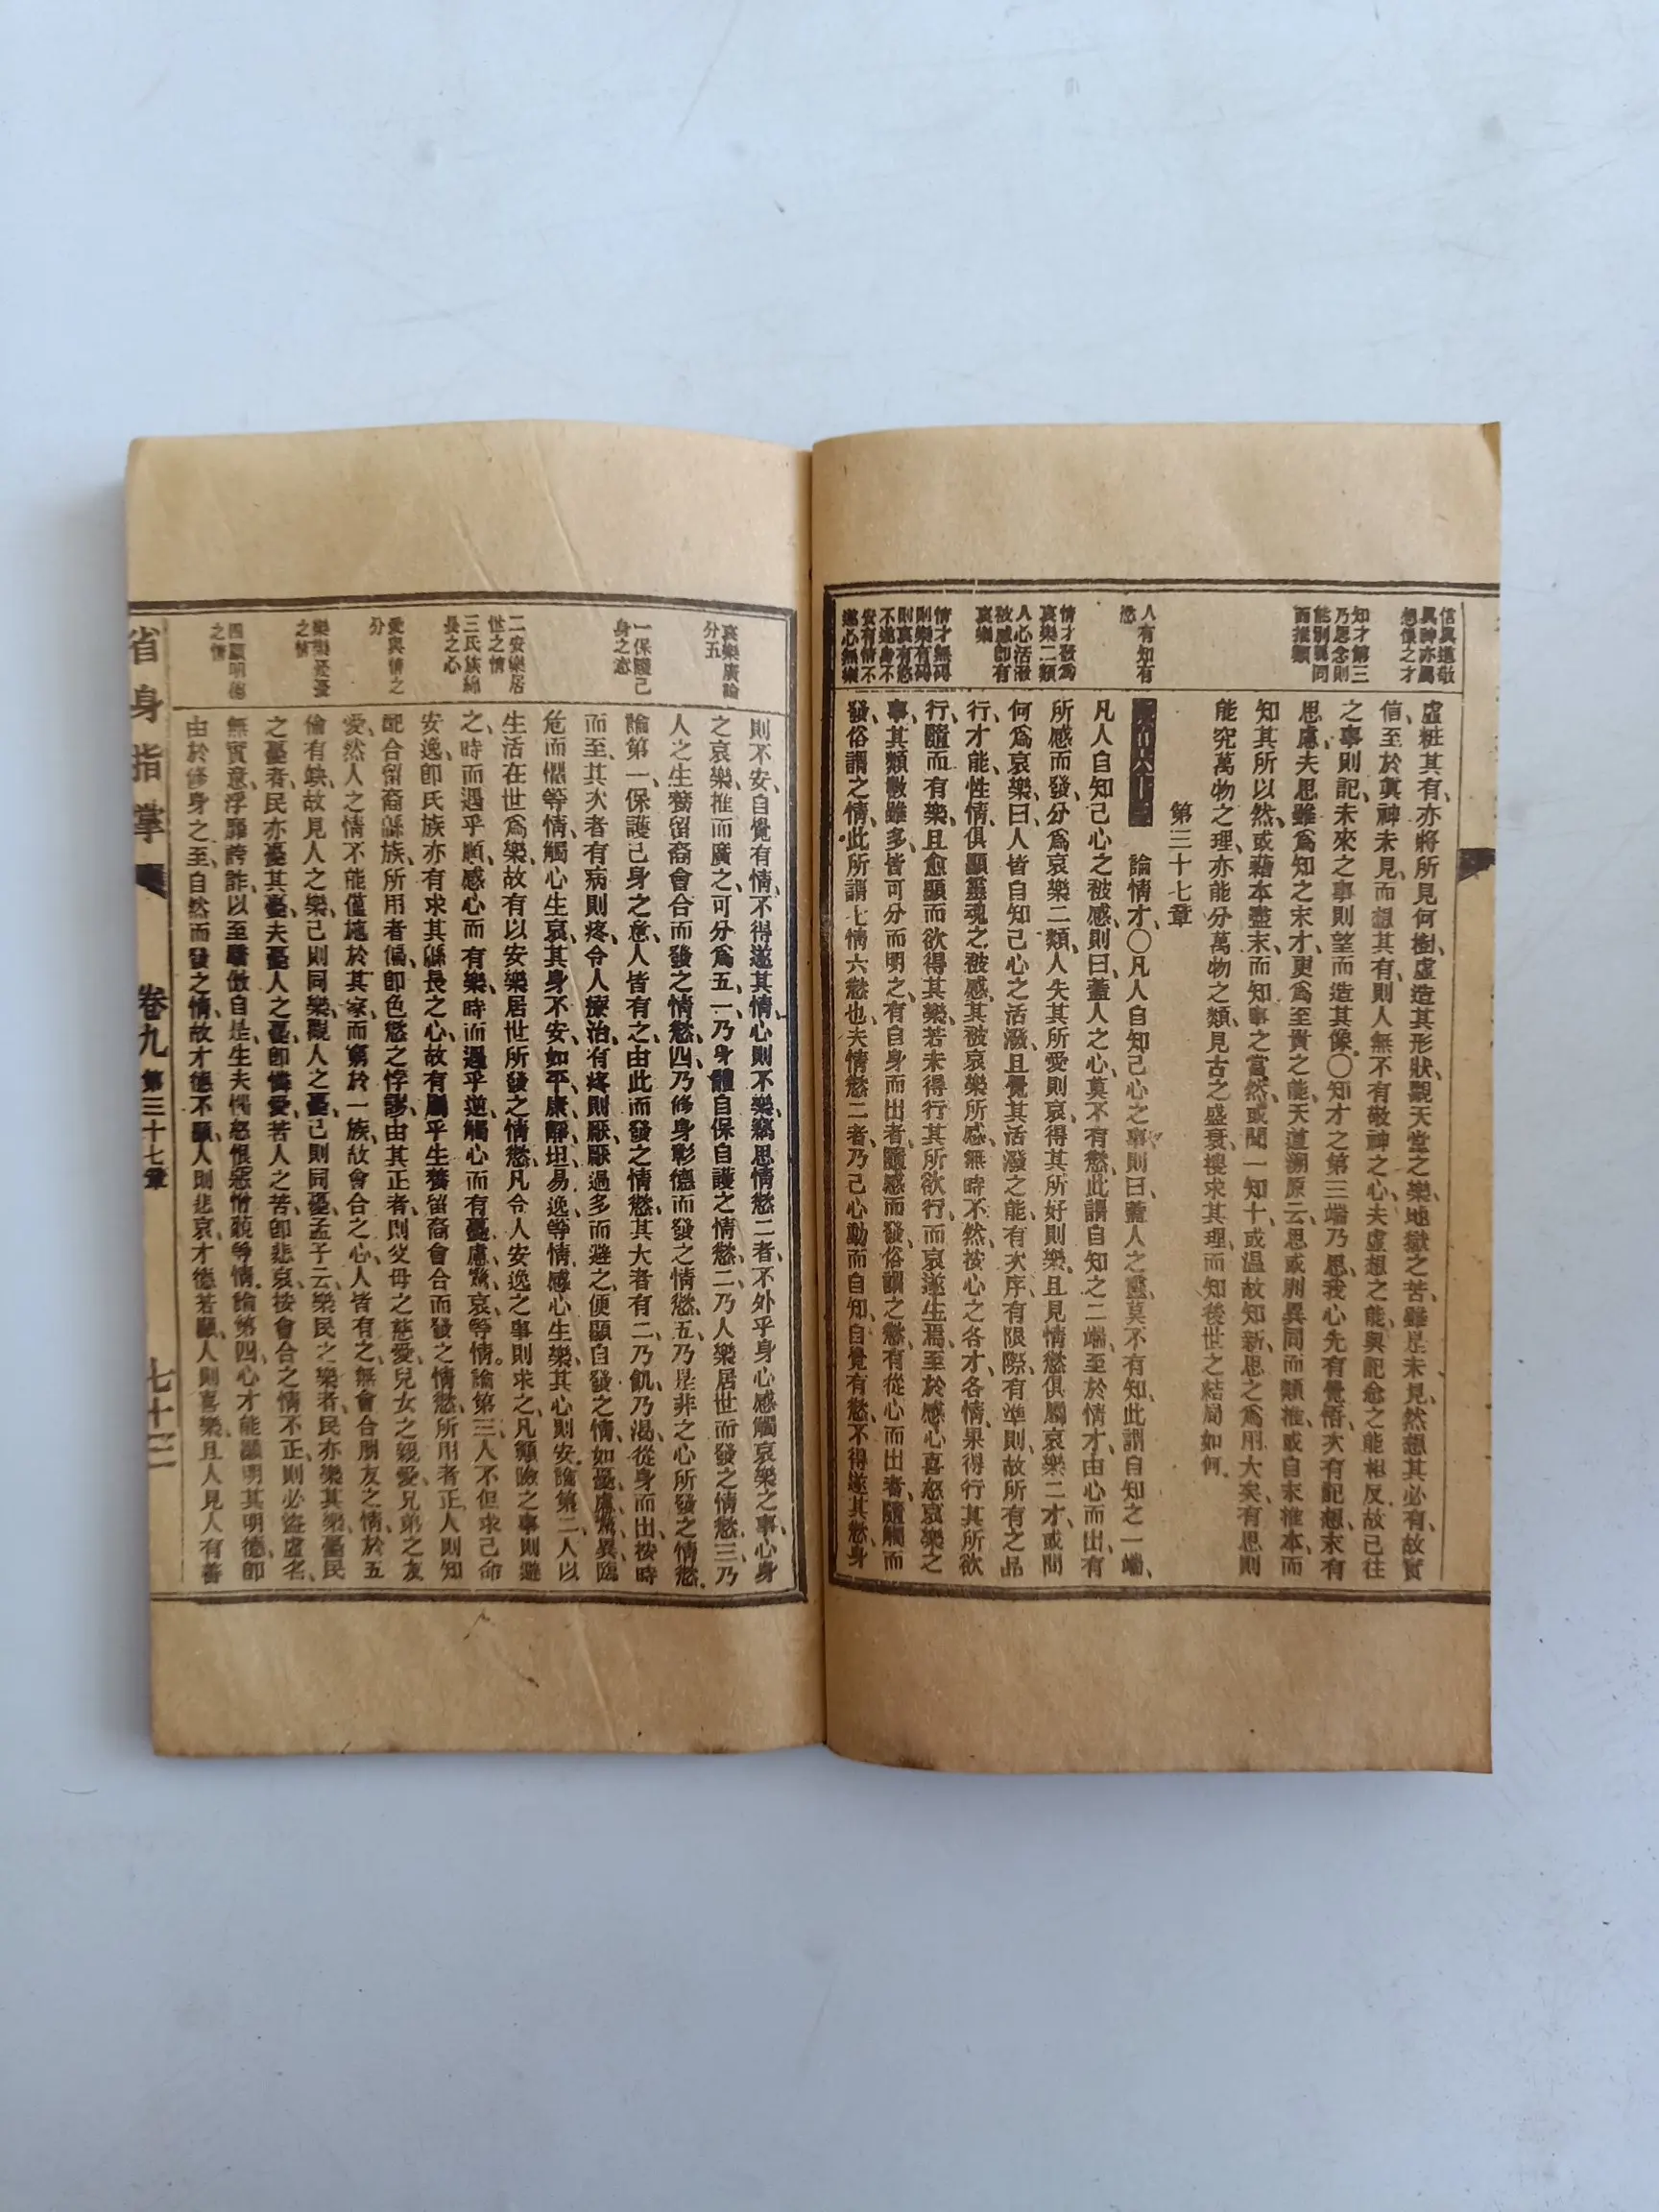 信真道敬
真神亦屬
想像之才
知才第三
乃思念則
能別異同
而推類
人有知有
慾
情才發爲
哀樂二類
人心活潑
被感卽有
哀樂
情才無碍
則樂有碍
則哀有慾
不遂身不
安有情不
遂心無樂
虛粧其有、亦將所見何樹、虛造其形狀、觀天堂之樂、地獄之苦、雖是未見、然想其必有、故實
信至於眞神未見、而想其有、則人無不有敬神之心、夫虛想之能、與記愈之能相反、故已往
之事則記、未來之事則望而造其像、〇知才之第三端乃思、我心先有覺悟、次有記想、末有
思慮、夫思雖爲知之末才、更爲至貴之能、天道溯原云、思或別異同而類推、或自末推本、而
知其所以然、或藉本盡末、而知事之當然、或聞一知十、或温故知新、思之爲用大矣、有思則
能究萬物之理、亦能分萬物之類、見古之盛衰、搜求其理、而知後世之結局如何。
第三十七章
論情才、〇凡人自知己心之事、則曰、蓋人之靈、莫不有知、此謂自知之一端、
凡人自知己心之被感、則曰、蓋人之心、莫不有慾、此謂自知之二端、至於情才、由心而出、有
所感而發、分爲哀樂二類、人失其所愛則哀、得其所好則樂、且見情慾俱屬哀樂二才、或問
何爲哀樂、曰、人皆自知己心之活潑、且覺其活潑之能、有次序、有限際、有準則、故所有之品
行、才能、性情、俱顯靈魂之被感、其被哀樂所感、無時不然、按心之各才、各情、果得行其所欲
行、隨而有樂、且愈顯而欲得其樂、若未得行其所欲行、而哀遂生焉、至於感心喜怒哀樂之
事、其類數雖多、皆可分而明之、有自身而出者、隨感而發、俗謂之慾、有從心而出者、隨觸而
發、俗謂之情、此所謂七情六慾也、夫情慾二者、乃己心動而自知、自覺有慾、不得遂其慾、身
哀樂廣論
分五
一保護己
身之意
二安樂居
世之情
三氏族綿
長之心
愛與情之
分
樂樂憂憂
之情
四顯明德
之情
則不安、自覺有情、不得遂其情、心則不樂、竊思情慾二者、不外乎身心感觸哀樂之事、心身
之哀樂、推而廣之、可分爲五、一、乃身體自保自護之情慾、二、乃人樂居世而發之情慾、三、乃
人之生養留裔會合而發之情慾、四、乃修身彰德而發之情慾、五、乃是非之心所發之情慾。
論第一、保護己身之意、人皆有之、由此而發之情慾、其大者有二、乃飢、乃渴、從身而出、按時
而至、其次者有病則疼、令人療治、有疼則厭、厭過多而避之、便顯自發之情、如憂、慮、驚、異、臨
危而懼等情、觸心生哀、其身不安、如平、康、靜、坦、易、逸、等情、感心生樂、其心則安、論第二、人以
生活在世爲樂、故有以安樂居世所發之情慾、凡令人安逸之事則求之、凡顯險之事則避
之、時而遇乎順、感心而有樂、時而遇乎逆、觸心而有憂、慮、驚、哀、等情。論第三、人不但求己命
安逸、卽氏族亦有求其緜長之心、故有屬乎生養留裔會合而發之情慾、所用者正、人則知
配合留裔緜族、所用者偏、卽色慾之悖謬、由其正者、則父母之慈愛、兒女之親愛、兄弟之友
愛、然人之情不能僅施於其家、而窮於一族、故會合之心、人皆有之、無會合朋友之情、於五
倫有缺、故見人之樂、己則同樂、觀人之憂、己則同憂、孟子云、樂民之樂者、民亦樂其樂、憂民
之憂者、民亦憂其憂、夫憂人之憂、卽憐愛、苦人之苦、卽悲哀、按會合之情不正、則必盜虛名、
無實意、浮靡誇詐、以至驕傲自是、生夫愕怒恨惡憎疑等情。論第四、心才能顯明其明德、卽
由於修身之至、自然而發之情、故才德不顯、人則悲哀、才德若顯、人則喜樂、且人見人有善
省身指掌
卷九
第三十七章
七十三